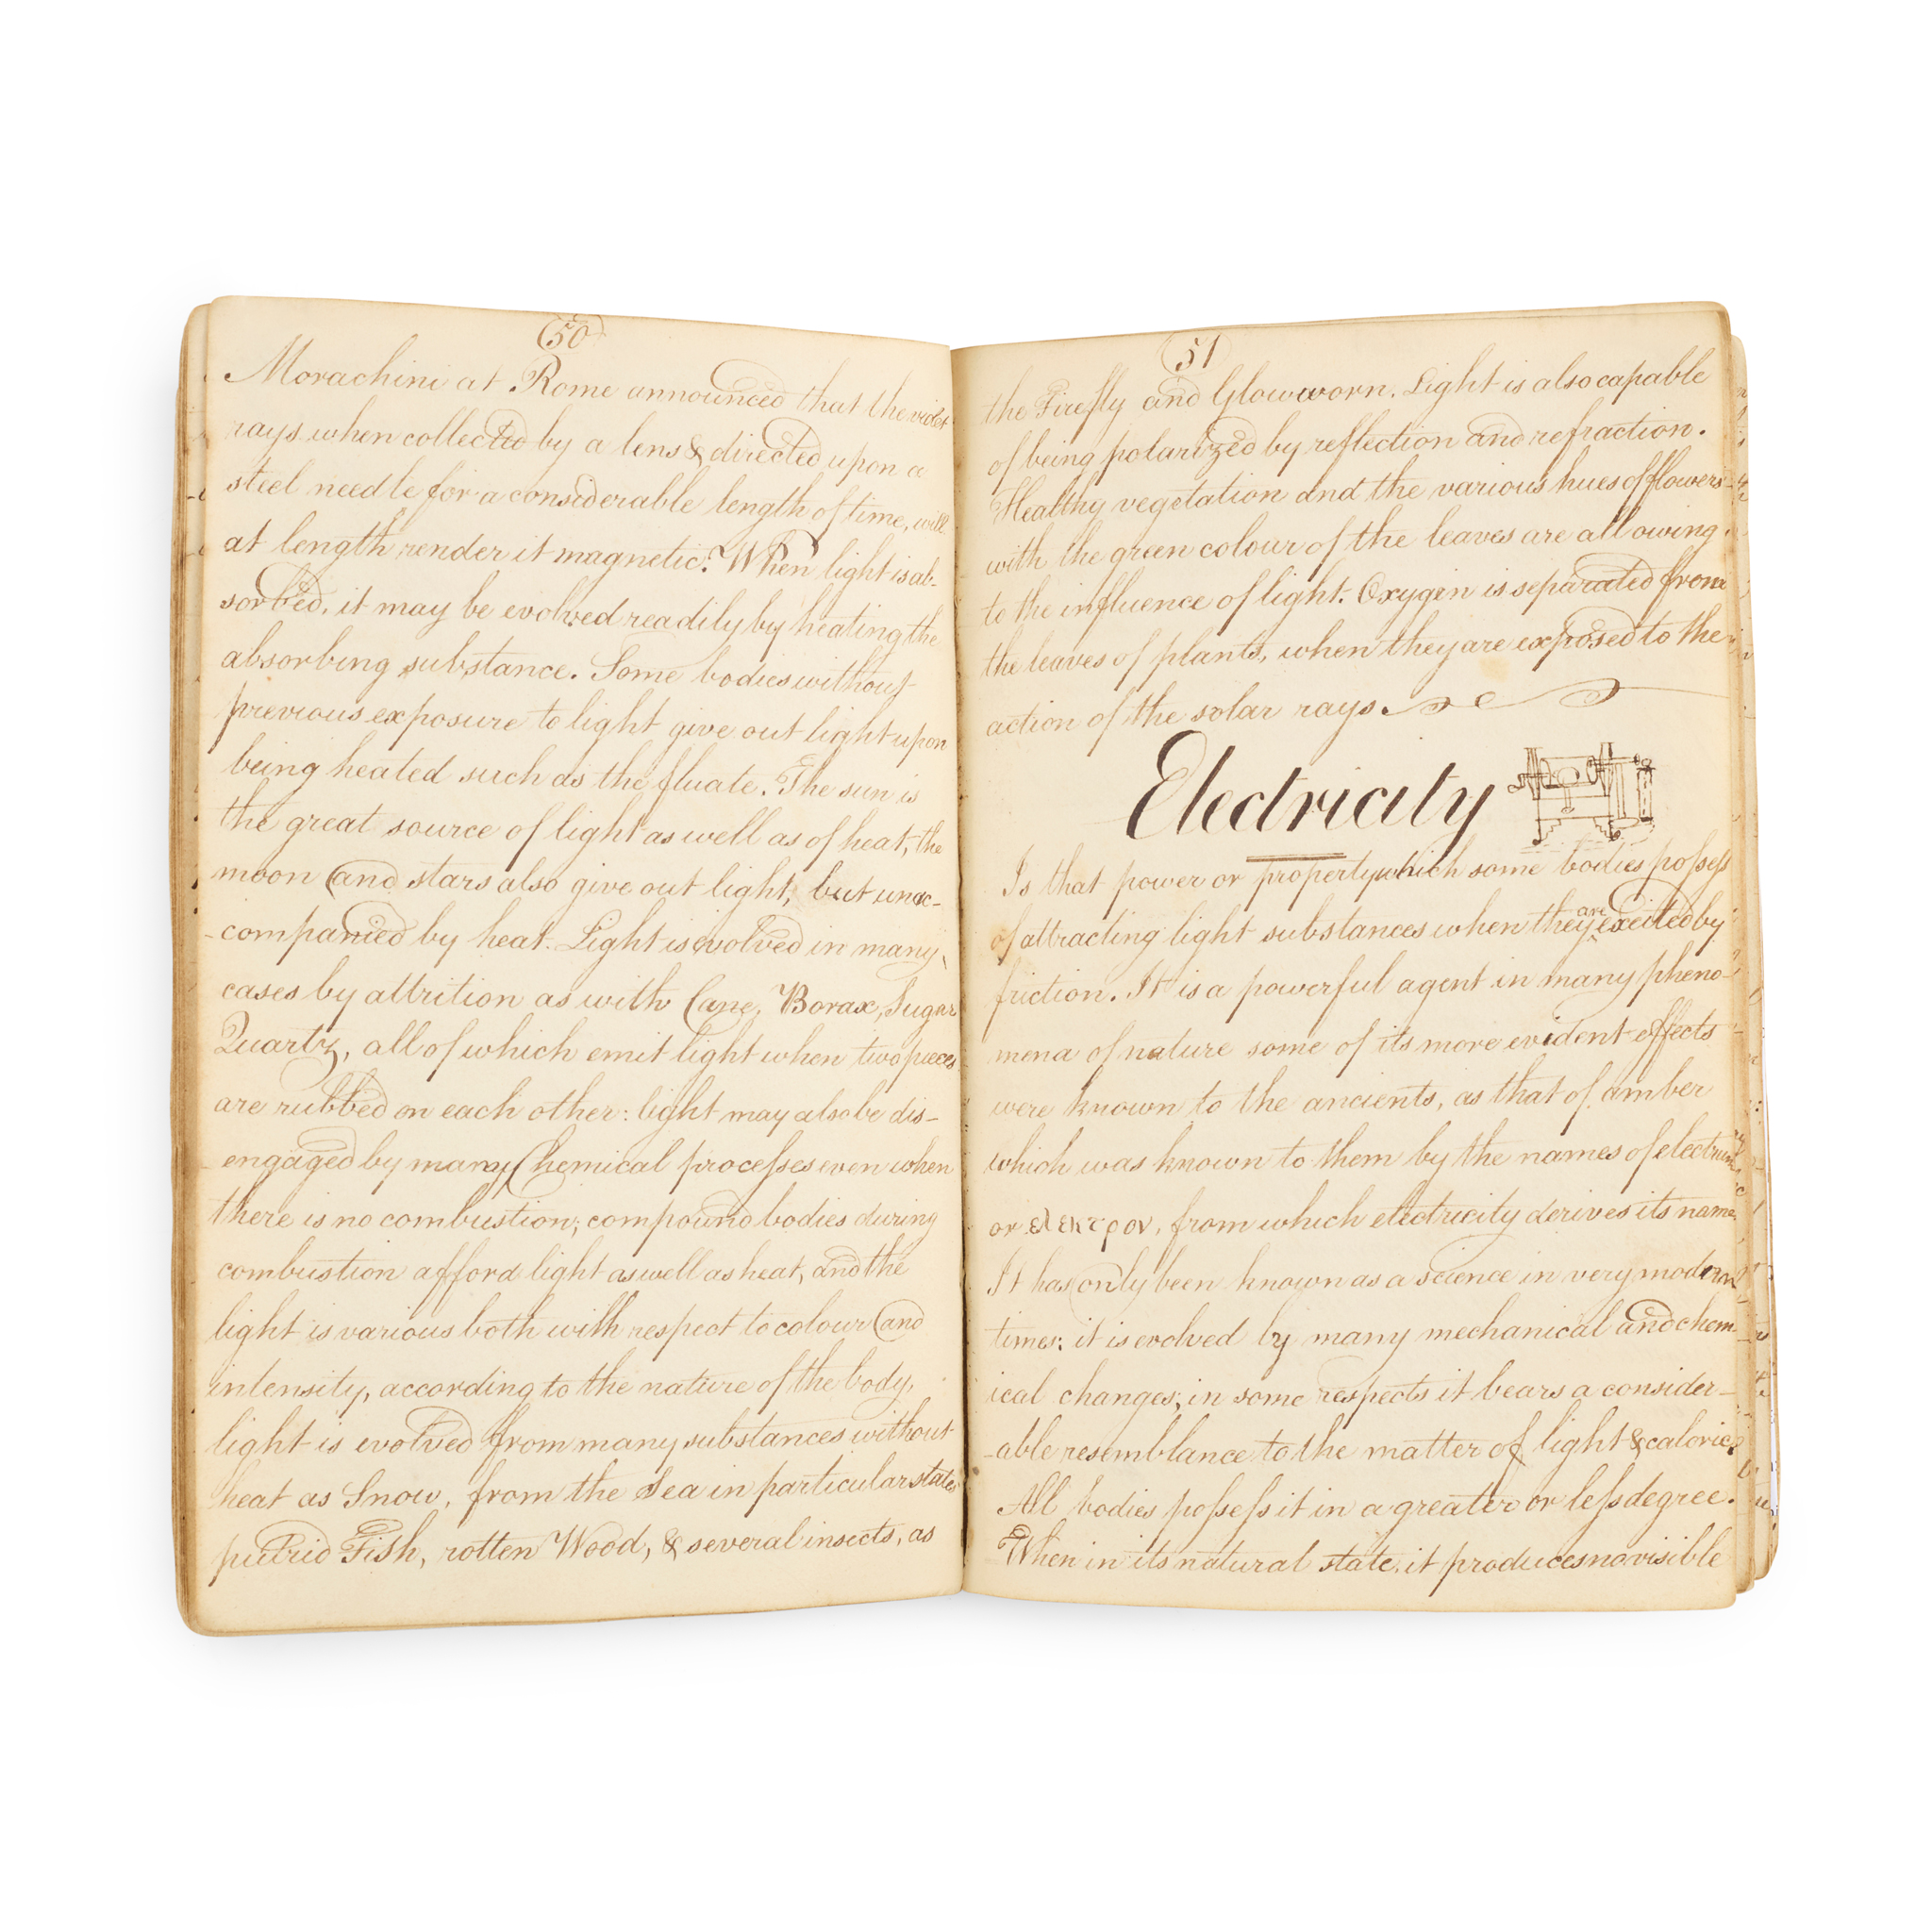 50
Morachini at Rome announced that the violet
rays when collected by a lens & directed upon a
steel needle for a considerable length of time, will
at length render it magnetic. When light is ab-
sorbed, it may be evolved readily by heating the
absorbing substance. Some bodies without
previous exposure to light give out light upon
being heated such as the fluate. The sun is
the great source of light as well as of heat, the
moon and stars also give out light, but unac-
-companied by heat. Light is evolved in many
cases by attrition as with Cane, Borax, Sugar
Quartz, all of which emit light when two pieces
are rubbed on each other: light may also be dis-
engaged by many Chemical processes even when
there is no combustion; compound bodies during
combustion afford light as well as heat, and the
light is various both with respect to colour and
intensity, according to the nature of the body,
light is evolved from many substances without
heat as Snow, from the Sea in particular states
putrid Fish, rotten Wood, & several insects, as
51
the Firefly and Glowworn. Light is also capable
of being polarized by reflection and refraction.
Healthy vegetation and the various hues of flowers
with the green colour of the leaves are all owing
to the influence of light. Oxygen is separated from
the leaves of plants, when they are exposed to the
action of the solar rays.
Electricity
Is that power or property which some bodies possess
of attracting light substances when they are excited by
friction. It is a powerful agent in many pheno-
mena of nature some of its more evident effects
were known to the ancients, as that of amber
which was known to them by the names of electrum
or ελεκτρον, from which electricity derives its name.
It has only been known as a science in very modern
times: it is evolved by many mechanical and chem-
ical changes; in some respects it bears a consider-
-able resemblance to the matter of light & caloric.
All bodies possess it in a greater or less degree.
When in its natural state, it produces no visible